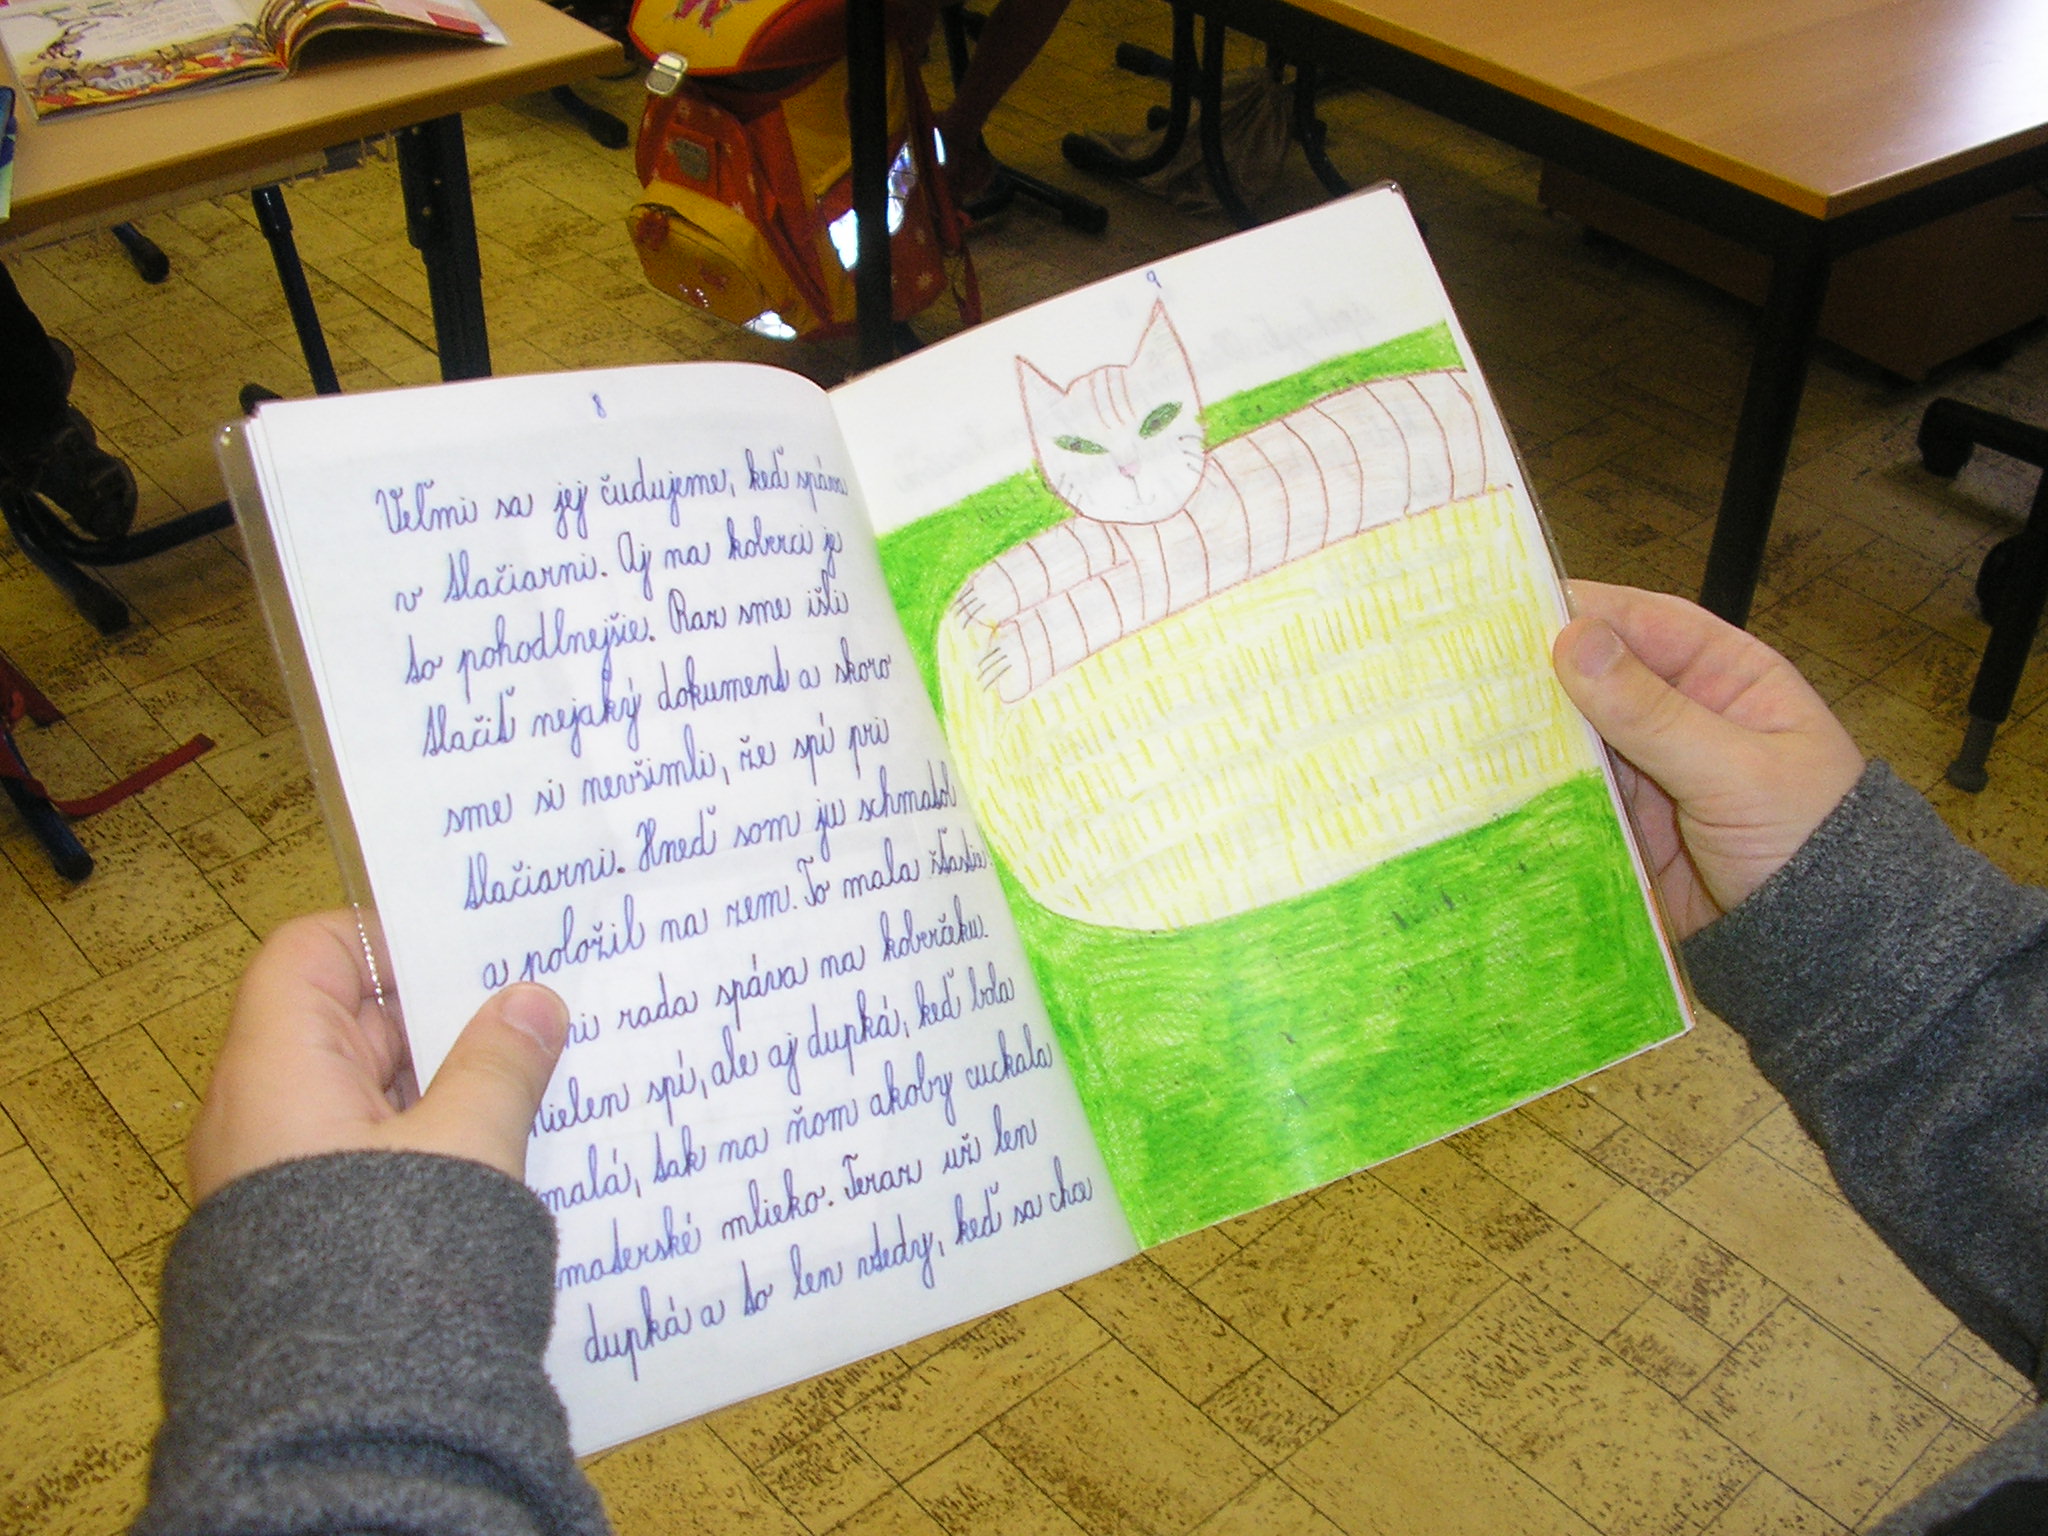 8
Veľmi sa jej čudujeme, keď spáva
v tlačiarni. Aj na koberci je
to pohodlnejšie. Raz sme išli
tlačiť nejaký dokument a skoro
sme si nevšimli, že spí pri
tlačiarni. Hneď som ju schmatol
a položil na zem. To mala šťastie.
rada spáva na koberčeku.
spí, ale aj dupká, keď bola
malá, tak na ňom akoby cuckala
materské mlieko. Teraz už len
dupká a to len vtedy, keď sa chce
9